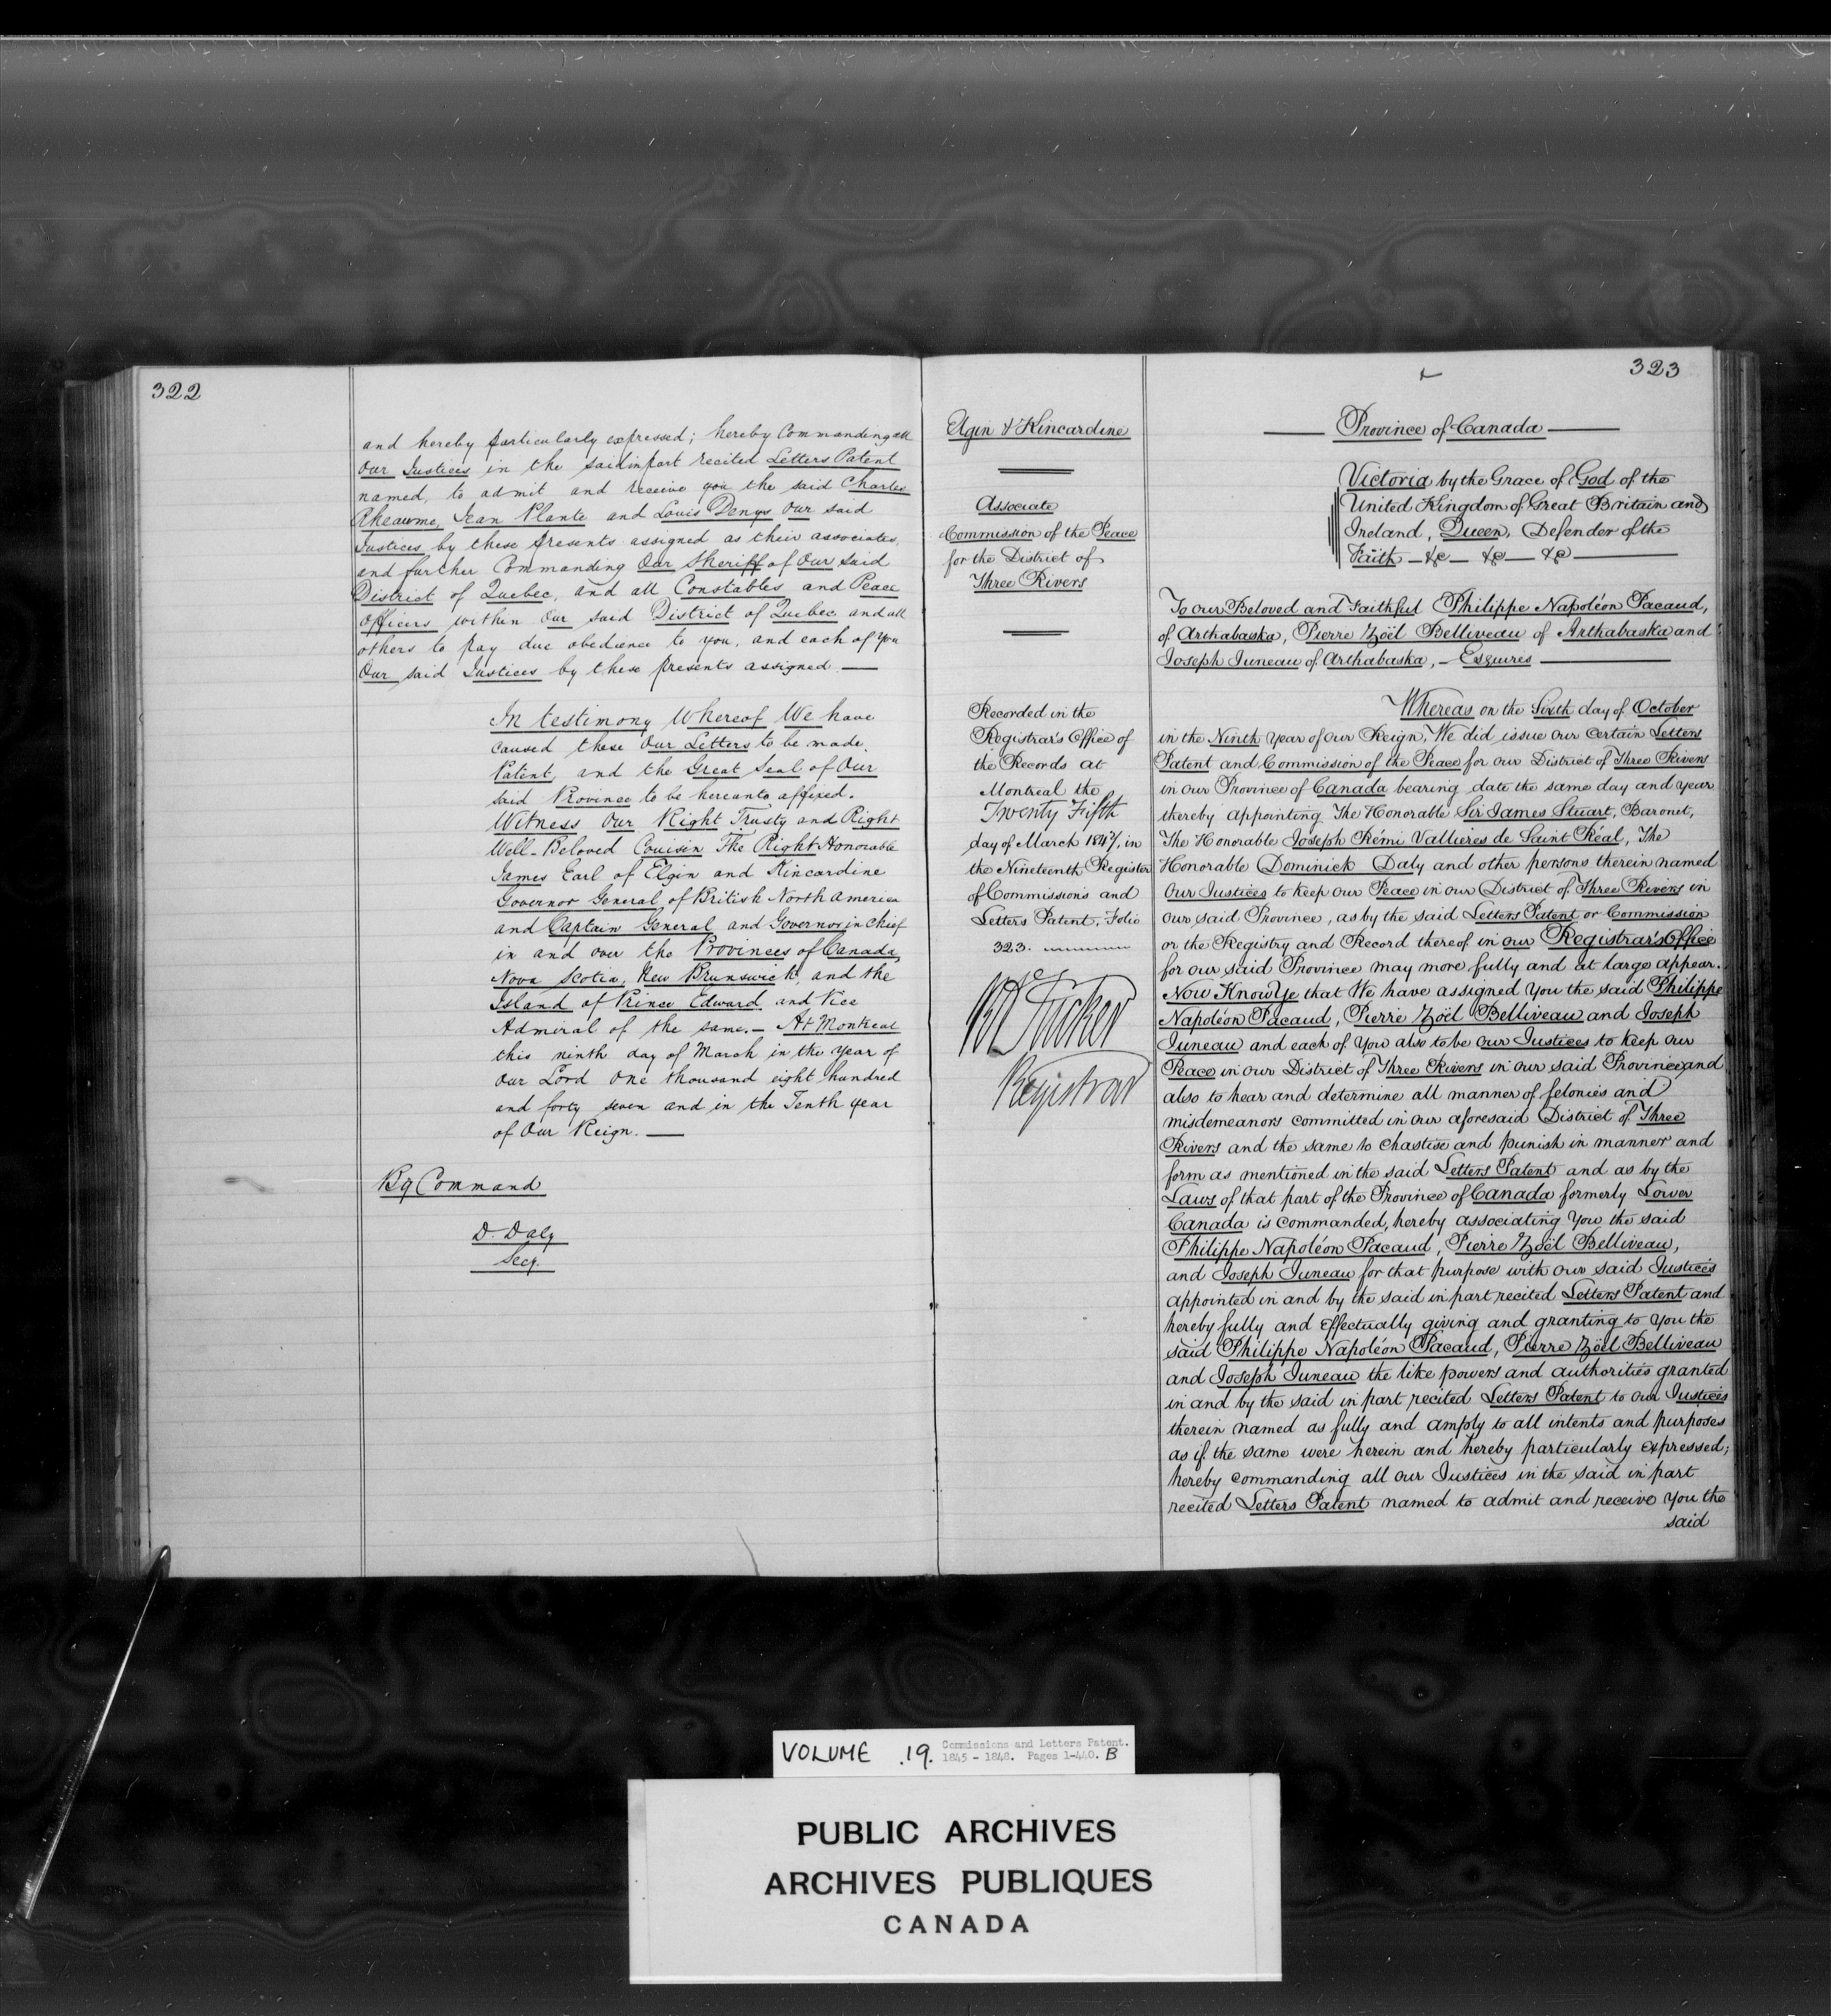 322
and hereby particularly expressed; hereby Commanding all
Our Justices in the said in part recited Letters Patent
named, to admit and receive you the said Charles
Rheaume, Jean Plante and Louis Denys Our said
Justices by these presents assigned as their associates,
and further Commanding Our Sheriff of Our said
District of Quebec, and all Constables and Peace
Officers within Our said District of Quebec and all
others to pay due obedience to you, and each of you
Our said Justices by these presents assigned —
In testimony Whereof We have
caused these Our Letters to be made
Patent, and the Great Seal of Our
said Province to be hereunto affixed.
Witness Our Right Trusty and Right
Well-Beloved Cousin The Right Honorable
James Earl of Elgin and Kincardine
Governor General of British North America
and Captain General and Governor in Chief
in and over the Provinces of Canada,
Nova Scotia, New Brunswick, and the
Island of Prince Edward and Vice
Admiral of the same. — At Montreal
this ninth day of March in the year of
Our Lord One thousand eight hundred
and forty seven and in the Tenth year
of Our Reign. —
By Command
D. Daly
Secy.
323
Elgin & Kincardine
Associate
Commission of the Peace
for the District of
Three Rivers
Recorded in the
Registrar's Office of
the Records at
Montreal the
Twenty Fifth
day of March 1847, in
the Nineteenth Register
of Commissions and
Letters Patent, Folio
323.
Tucker
Registrar
Province of Canada
Victoria by the Grace of God of the
United Kingdom of Great Britain and
Ireland, Queen, Defender of the
Faith — &c — &c — &c —
To our Beloved and Faithful Philippe Napoléon Pacaud,
of Arthabaska, Pierre Zöel Belliveau of Arthabaska and
Joseph Juneau of Arthabaska, — Esquires —
Whereas on the Sixth day of October
in the Ninth Year of our Reign, We did issue our certain Letters
Patent and Commission of the Peace for our District of Three Rivers
in our Province of Canada bearing date the same day and year
thereby appointing The Honorable Sir James Stuart, Baronet,
The Honorable Joseph Rémi Vallières de Saint Réal, The
Honorable Dominick Daly and other persons therein named
Our Justices to keep our Peace in our District of Three Rivers in
our said Province, as by the said Letters Patent or Commission
or the Registry and Record thereof in our Registrar's Office
for our said Province may more fully and at large appear.
Now Know Ye that We have assigned You the said Philippe
Napoléon Pacaud, Pierre Zöel Belliveau and Joseph
Juneau and each of You also to be our Justices to keep our
Peace in our District of Three Rivers in our said Province and
also to hear and determine all manner of felonies and
misdemeanors committed in our aforesaid District of Three
Rivers and the same to chastise and punish in manner and
form as mentioned in the said Letters Patent and as by the
Laws of that part of the Province of Canada formerly Lower
Canada is commanded, hereby associating You the said
Philippe Napoléon Pacaud, Pierre Zöel Belliveau,
and Joseph Juneau for that purpose with our said Justices
appointed in and by the said in part recited Letters Patent and
hereby fully and effectually giving and granting to you the
said Philippe Napoléon Pacaud, Pierre Zöel Belliveau
and Joseph Juneau the like powers and authorities granted
in and by the said in part recited Letters Patent to our Justices
therein named as fully and amply to all intents and purposes
as if the same were herein and hereby particularly expressed;
hereby commanding all our Justices in the said in part
recited Letters Patent named to admit and receive you the
said
VOLUME .19. Commissions and Letters Patent.
1845 - 1848. Pages 1-440. B
PUBLIC ARCHIVES
ARCHIVES PUBLIQUES
CANADA